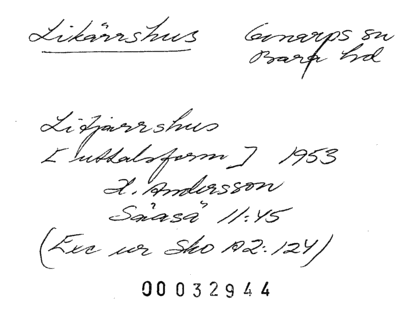 Likärrshus Genarps sn
Bara hd
Litjarrshus
[uttalsform] 1953
H. Andersson
Såaså 11:45
(Exc ur Sko A2: 124)
00032944